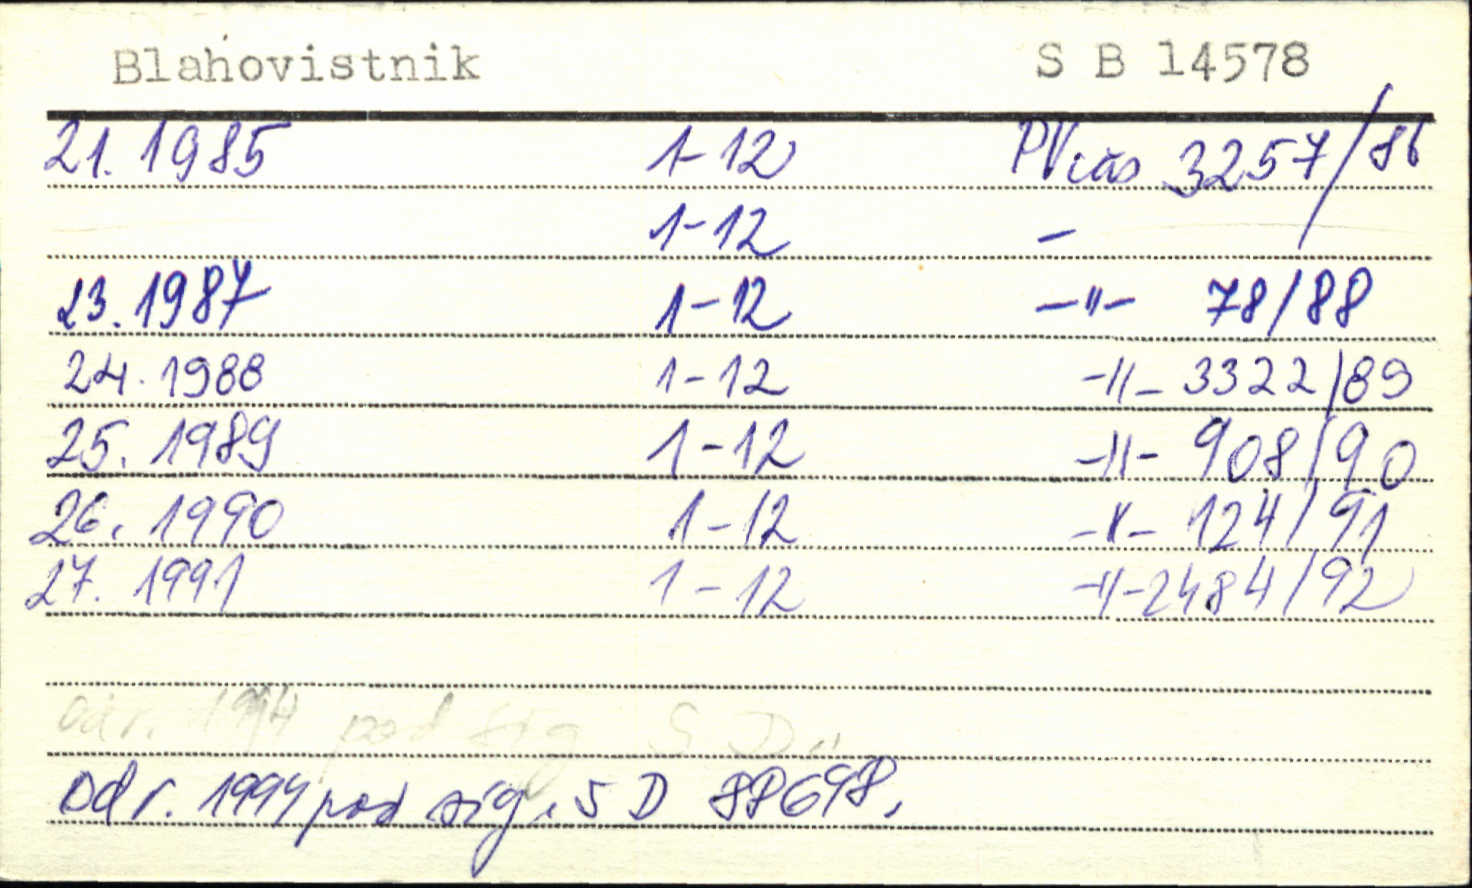 Blahovistnik S B 14578
21. 1985 1-12 PVčás 3257/86
1-12 -
23. 1987 1-12 -"- 78/88
24. 1988 1-12 -"- 3322/89
25. 1989 1-12 -"- 908/90
26. 1990 1-12 -"- 124/91
27. 1991 1-12 -"- 2484/92
od r. 1994 pod sig S D
od r. 1994 pod sig. S D 88698.